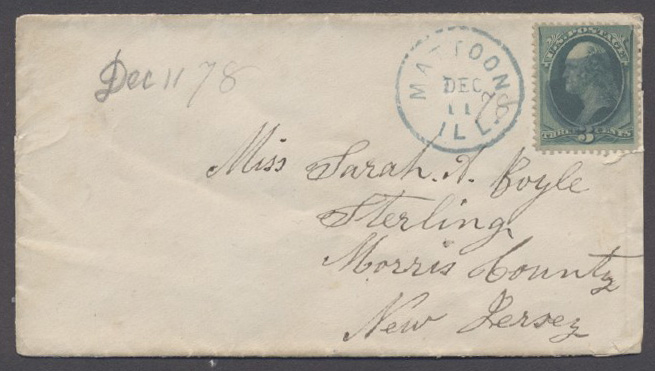 Dec 11 78
MATTOON
DEC
11
78
ILL.
U.S. POSTAGE
THREE 3 CENTS
Miss Sarah. A. Coyle
Sterling
Morris County
New Jersey